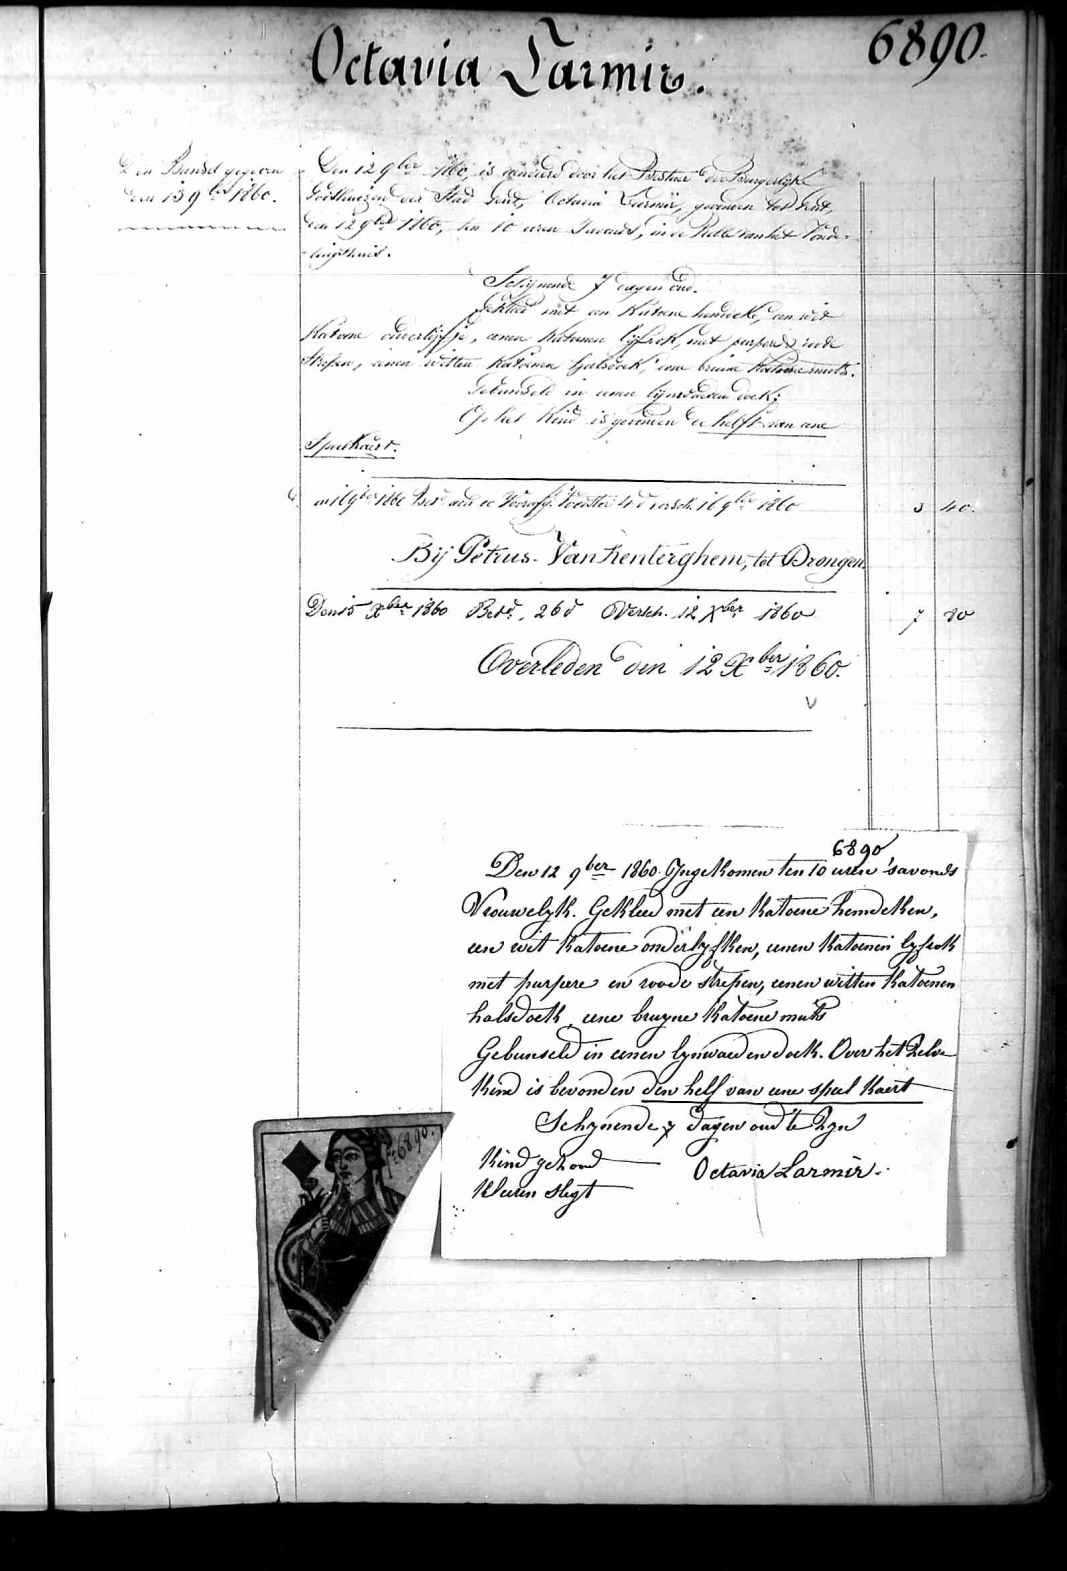 6890.
Octavia Larmir.
Den Bansel gegeven
den 13 9ber 1860.
Den 12 9ber 1860, is door het Bestuer der Burgerlijke
Godshuizen der Stad Gent, Octavia Larmir, gevonden tot Gent,
den 12 9ber 1860, ten 10 uren 's avonds, in de Rolle van het Vonde-
lingshuis.
Schijnende 7 dagen oud.
Gekleed met een Katoene hemdeke, een wit
Katoene onderlijfje, eenen Katoenen lijfrok, met purpere roode
strepen, eenen witten Katoenen halsdoek, eene bruine Katoene muts.
Gebunseld in eenen lijnwaeden doek;
Op het Kind is gevonden de helft van eene
Speelkaert.
16 9ber 1860 4 d versch. 16 9ber 1860
3 40.
Bij Petrus Van Kenterghem, tot Drongen
Den 15 Xber 1860 Betd. 26 d Versch. 12 Xber 1860
7 80
Overleden den 12 Xber 1860.
6890
Den 12 9ber 1860 Ingekomen ten 10 uren 'savonds
Vrouwelyk. Gekleed met een Katoene hemdeken,
een wit Katoene onderlyfken, eenen Katoenen lyfrok
met purpere en roode strepen, eenen witten Katoenen
halsdoek, eene bruyne Katoene muts
Gebunseld in eenen lynwaeden doek. Over het Zelve
Kind is bevonden den helf van eene speel Kaert
Schynende 7 dagen oud te Zyn
Kind gezond
Octavia Larmir.
Kleeren slegt
6890.